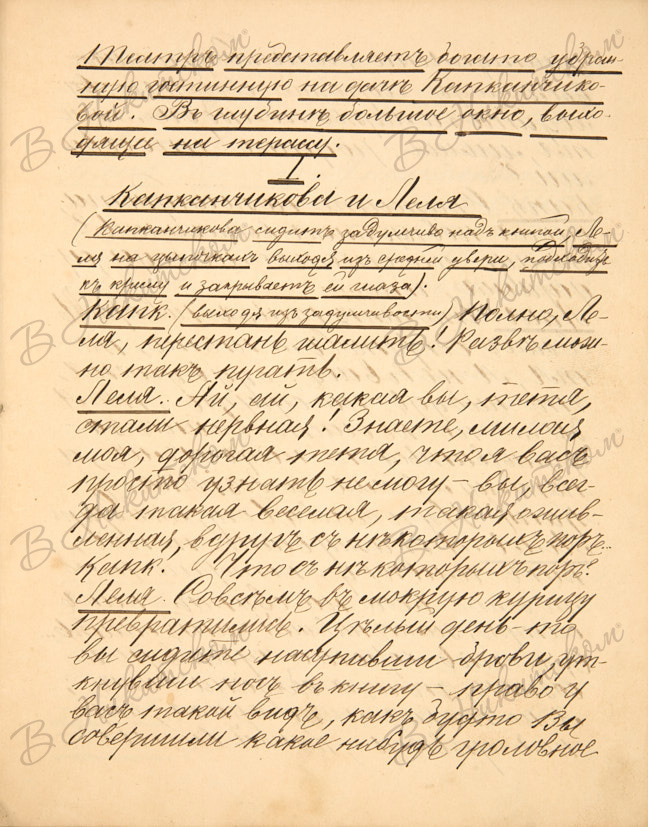 Театръ представляетъ богато убран-
ную гостинную на дачѣ Капканчико-
вой. Въ глубинѣ большое окно, выхо-
дящее на терассу.
I.
Капканчикова и Леля
(Капканчикова сидитъ задумчиво надъ книгой, Ле-
ля на цыпочкахъ выходя изъ средней двери, подходитъ
къ креслу и закрываетъ ей глаза).
Капк. (выходя изъ задумчивости) Полно, Ле-
ля, перестань шалить! Развѣ мож-
но такъ пугать.
Леля. Ай, ай, какая вы, тетя,
стали нервная! Знаете, милая
моя, дорогая тетя, что я васъ
просто узнать не могу – вы, всег-
да такая веселая, такая ожив-
ленная, вдругъ съ нѣкоторыхъ поръ..
Капк. Что съ нѣкоторыхъ поръ?
Леля. Совсѣмъ въ мокрую курицу
превратились. Цѣлый день-то
вы сидите насупивши брови, ут-
кнувши носъ въ книгу – право у
васъ такой видъ, какъ будто Вы
совершили какое нибудь уголовное
В. Никитском